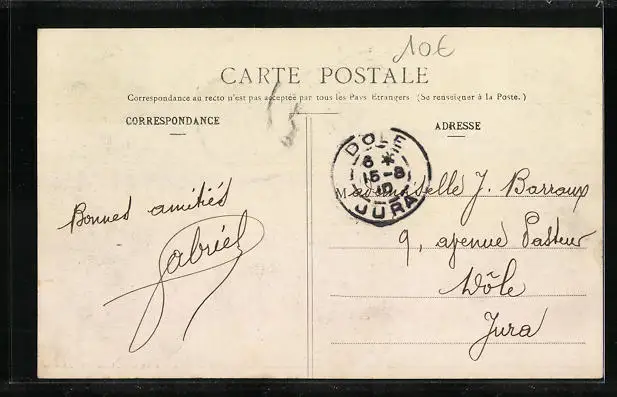 10€
CARTE POSTALE
Correspondance au recto n'est pas acceptée par tous les Pays Etrangers (Se renseigner à la Poste.)
CORRESPONDANCE
ADRESSE
DOLE
6 *
15-8
10
JURA
Bonnes amitiés
Gabriel
Mademoiselle J. Barraux
9, avenue Pasteur
Dôle
Jura